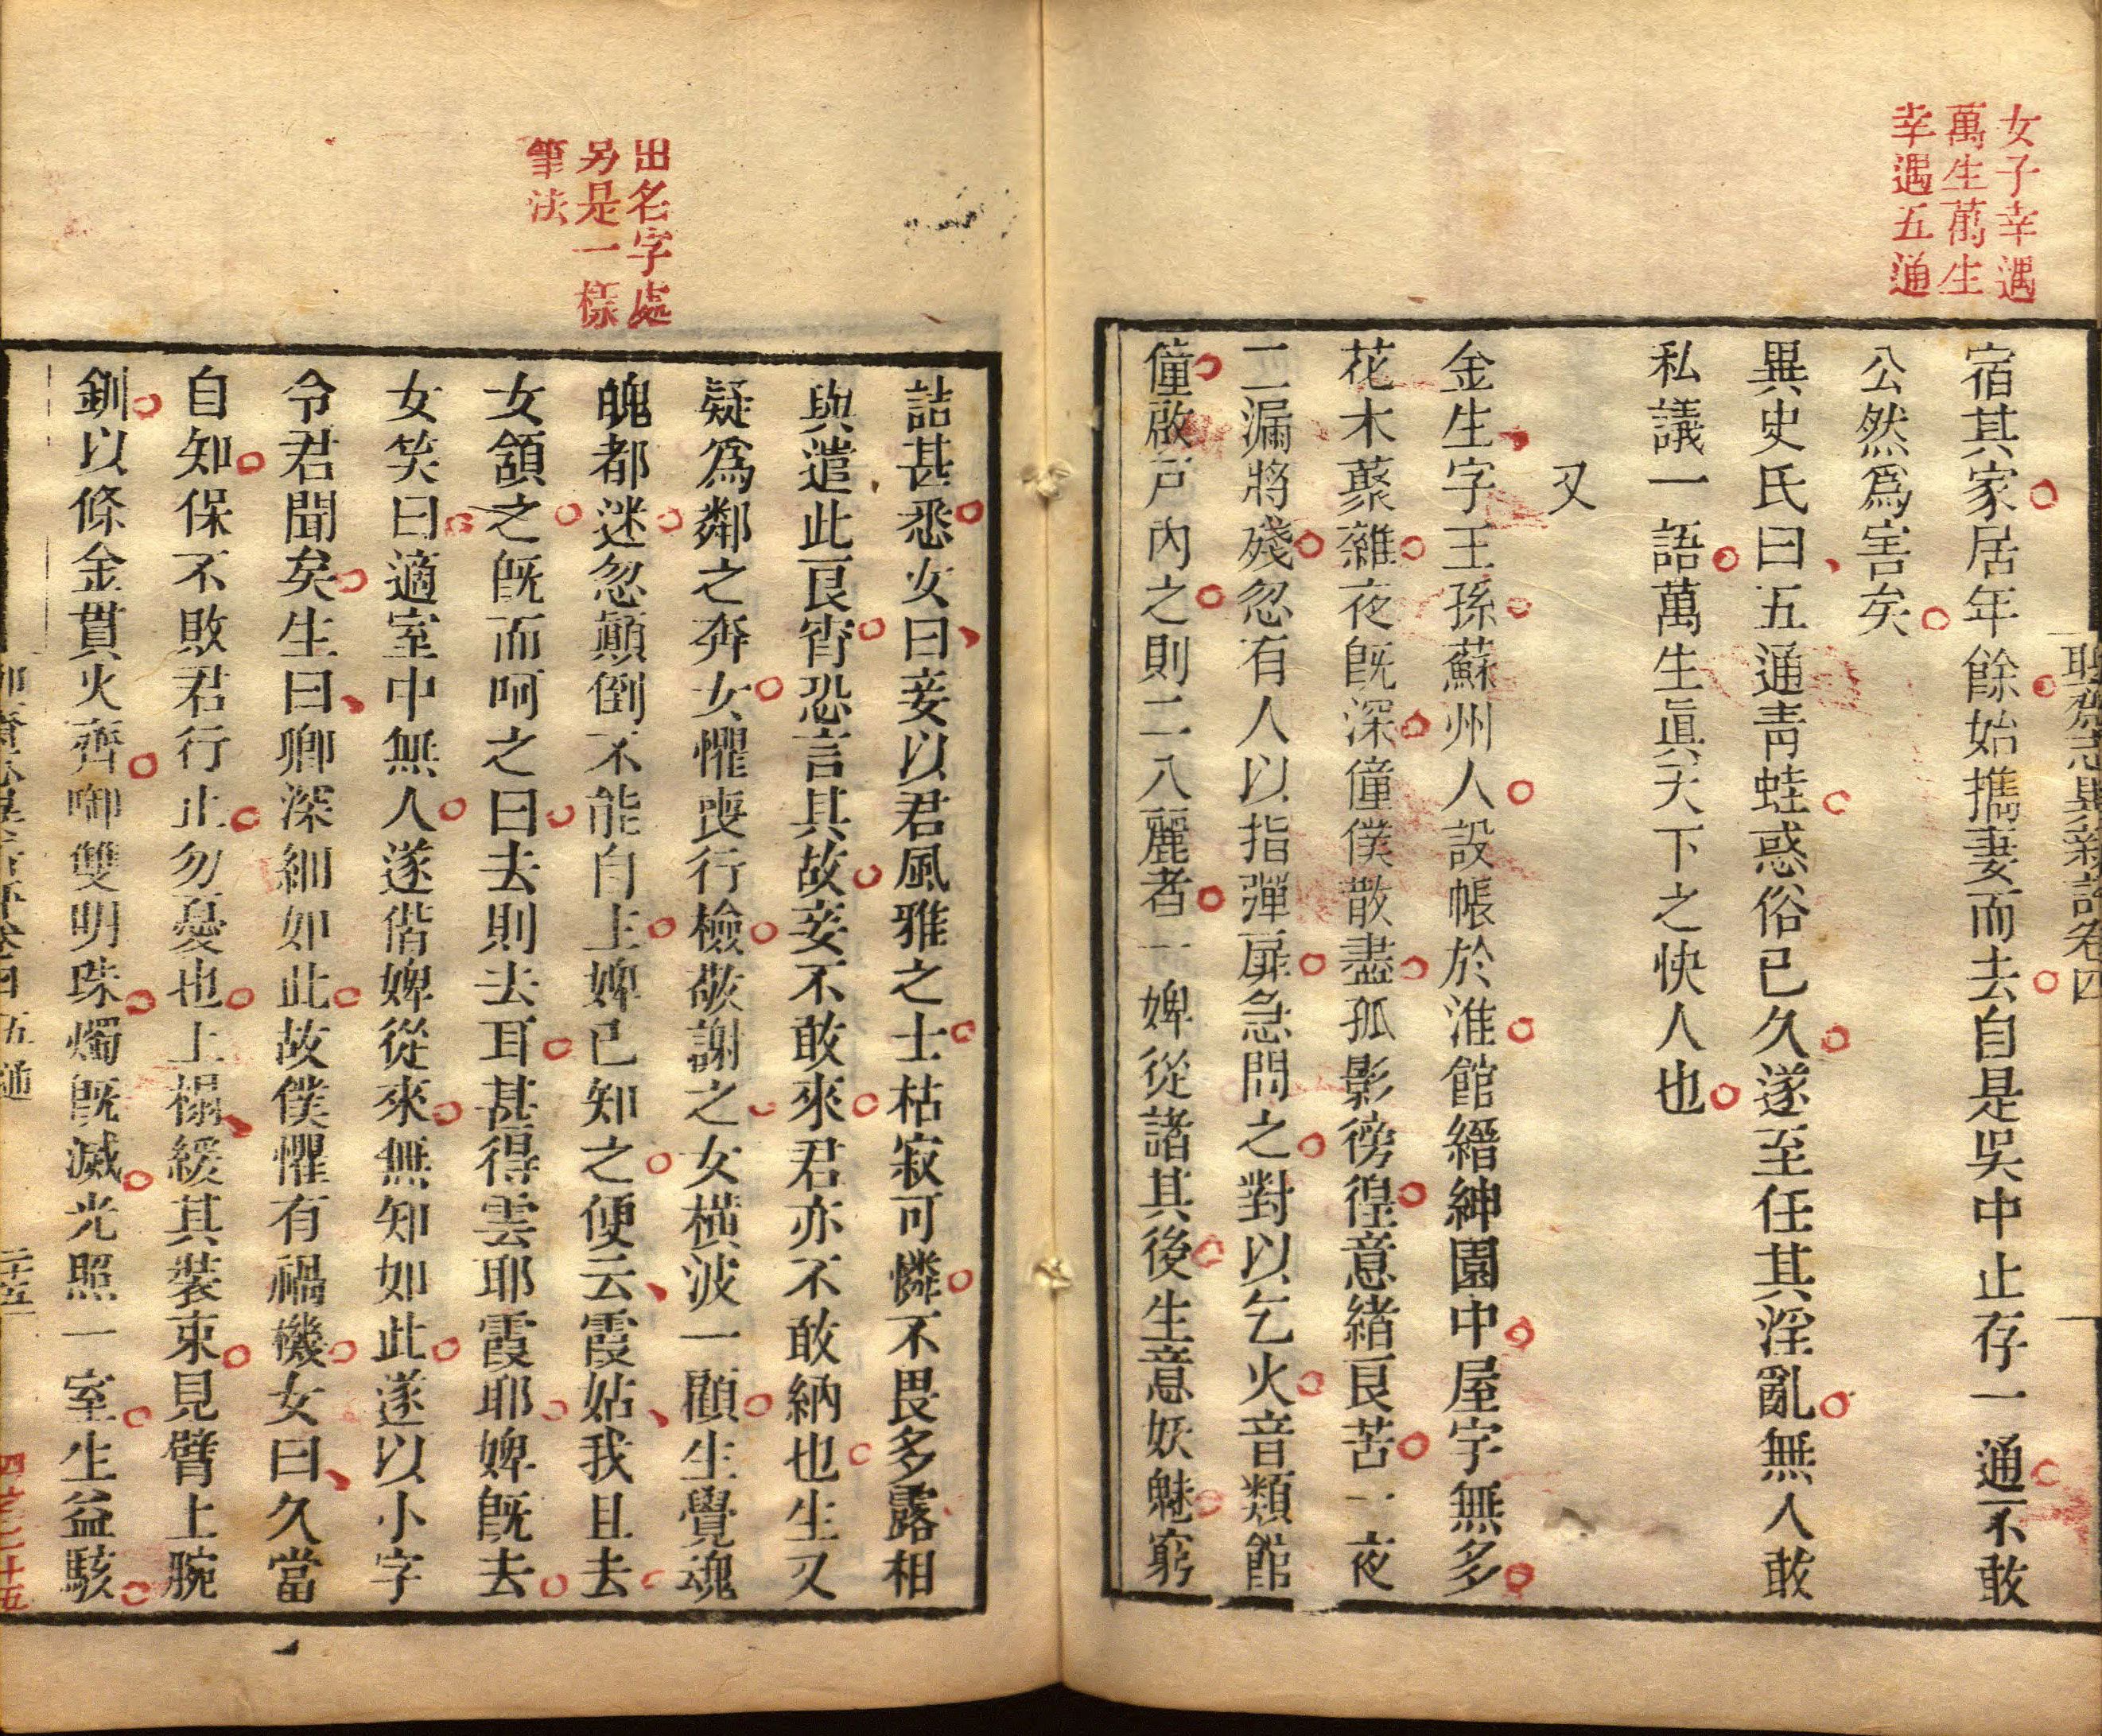 女子幸遇
萬生萬生
幸遇五通
聊齋志異新評卷四
宿其家居年餘始攜妻而去自是吳中止存一通不敢
公然爲害矣
異史氏曰五通青蛙惑俗已久遂至任其淫亂無人敢
私議一語萬生真天下之快人也
又
金生字王孫蘇州人設帳於淮館縉紳園中屋宇無多
花木蘂雜夜既深僮僕散盡孤影徬徨意緒艮苦一夜
二漏將殘忽有人以指彈扉急問之對以乞火音類館
僮啟戸內之則二八麗者一婢從諸其後生意妖魅窮
出名字處
另是一樣
筆法
詰甚悉女曰妾以君風雅之士枯寂可憐不畏多露相
與遣此艮宵恐言其故妾不敢來君亦不敢納也生又
疑爲鄰之奔女懼喪行檢敬謝之女橫波一顧生覺魂
魄都迷忽顛倒不能自主婢已知之便云霞姑我且去
女頷之既而呵之曰去則去耳甚得雲耶霞耶婢既去
女笑曰適室中無人遂偕婢從來無知如此遂以小字
令君聞矣生曰卿深細如此故僕懼有禍機女曰久當
自知保不敗君行止勿憂也上榻緩其裝束見臂上腕
釧以條金貫火齊啣雙明珠燭既滅光照一室生益駭
五通